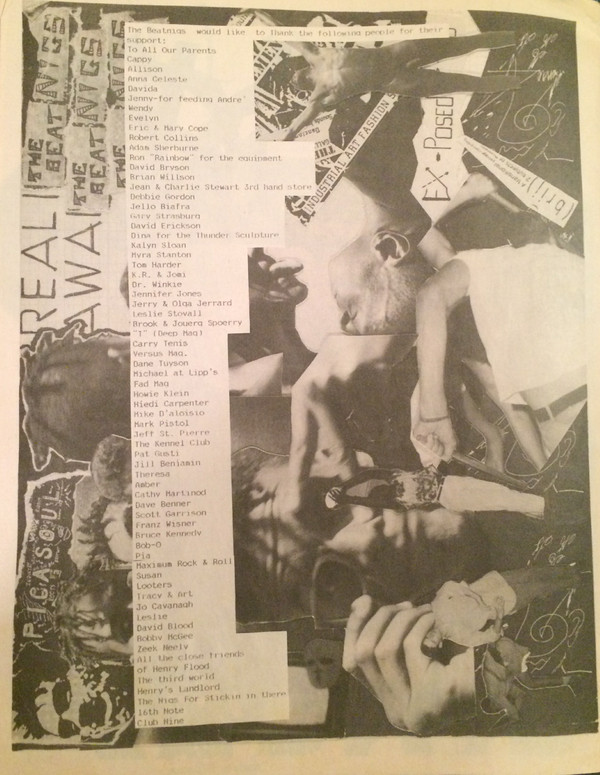 The Beatnigs would like to Thank the following people for their
support:
To All Our Parents
Cappy
Allison
Anna Celeste
Davida
Jenny-for feeding Andre'
Wendy
Evelyn
Eric & Mary Cope
Robert Collins
Adam Sherburne
Ron "Rainbow" for the equipment
David Bryson
Brian Willson
Jean & Charlie Stewart 3rd hand store
Debbie Gordon
Jello Biafra
Gary Strasburg
David Erickson
Dina for the Thunder Sculpture
Kalyn Sloan
Myra Stanton
Tom Harder
K.R. & Jomi
Dr. Winkie
Jennifer Jones
Jerry & Olga Jerrard
Leslie Stovall
Brook & Jouerg Spoerry
"T" (Deep Mag)
Carry Tenis
Versus Mag.
Dane Tuyson
Michael at Lipp's
Fad Mag
Howie Klein
Hiedi Carpenter
Mike D'aloisio
Mark Pistol
Jeff St. Pierre
The Kennel Club
Pat Gusti
Jill Benjamin
Theresa
Amber
Cathy Martinod
Dave Benner
Scott Garrison
Franz Wisner
Bruce Kennedy
Bob-O
Pia
Maximum Rock & Roll
Susan
Looters
Tracy & Art
Jo Cavanagh
Leslie
David Blood
Bobby McGee
Zeek Neely
All the close friends
of Henry Flood
The third world
Henry's Landlord
The Nigs For Stickin in there
16th Note
Club Nine
THE
BEATNIGS
THE
BEATNIGS
THE
REAL
AWA
INDUSTRIAL ART FASHION
EX-POSED
(brij)
PIGASOUL